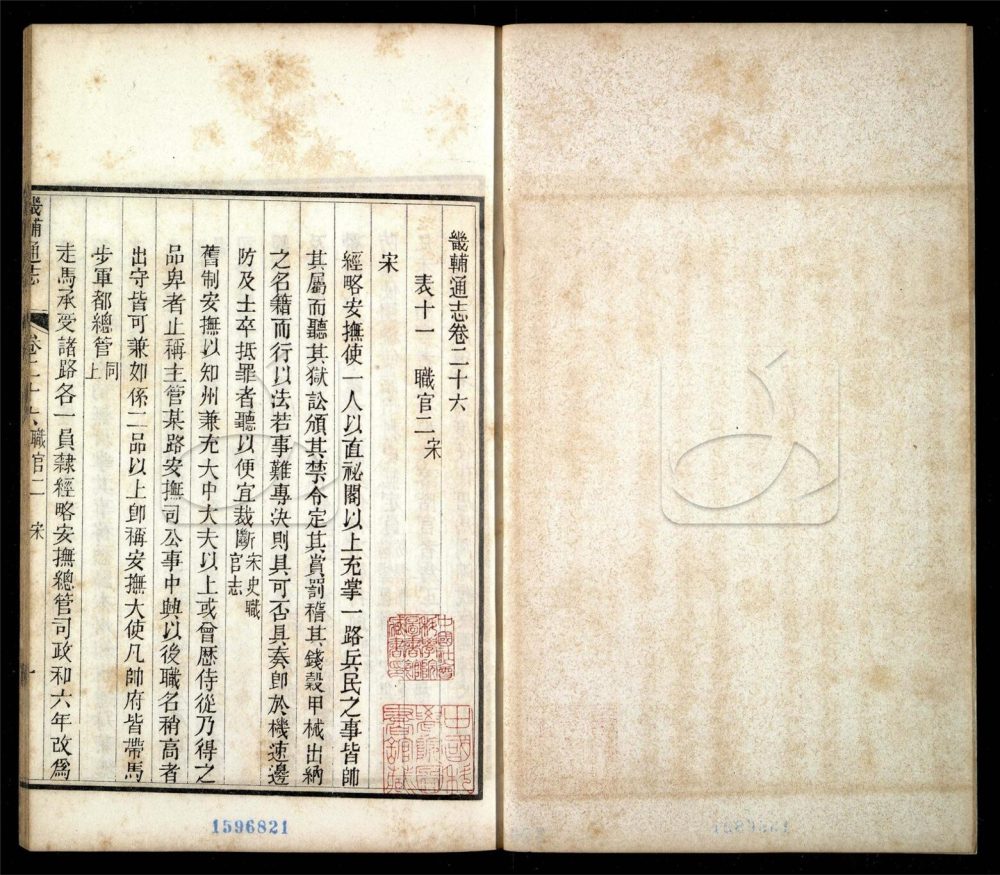 畿輔通志卷二十六
表十一 職官二 宋
宋
經略安撫使一人以直祕閣以上充掌一路兵民之事皆帥
其屬而聽其獄訟頒其禁令定其賞罰稽其錢穀甲械出納
之名籍而行以法若事難專決則具可否具奏卽於機速邊
防及士卒抵罪者聽以便宜裁斷宋史職官志
舊制安撫以知州兼充大中大夫以上或曾歷侍從乃得之
品卑者止稱主管某路安撫司公事中興以後職名稍高者
出守皆可兼如係二品以上卽稱安撫大使凡帥府皆帶馬
步軍都總管同上
走馬承受諸路各一員隸經略安撫總管司政和六年改爲
畿輔通志 卷二十六 職官二 宋 一
1596821